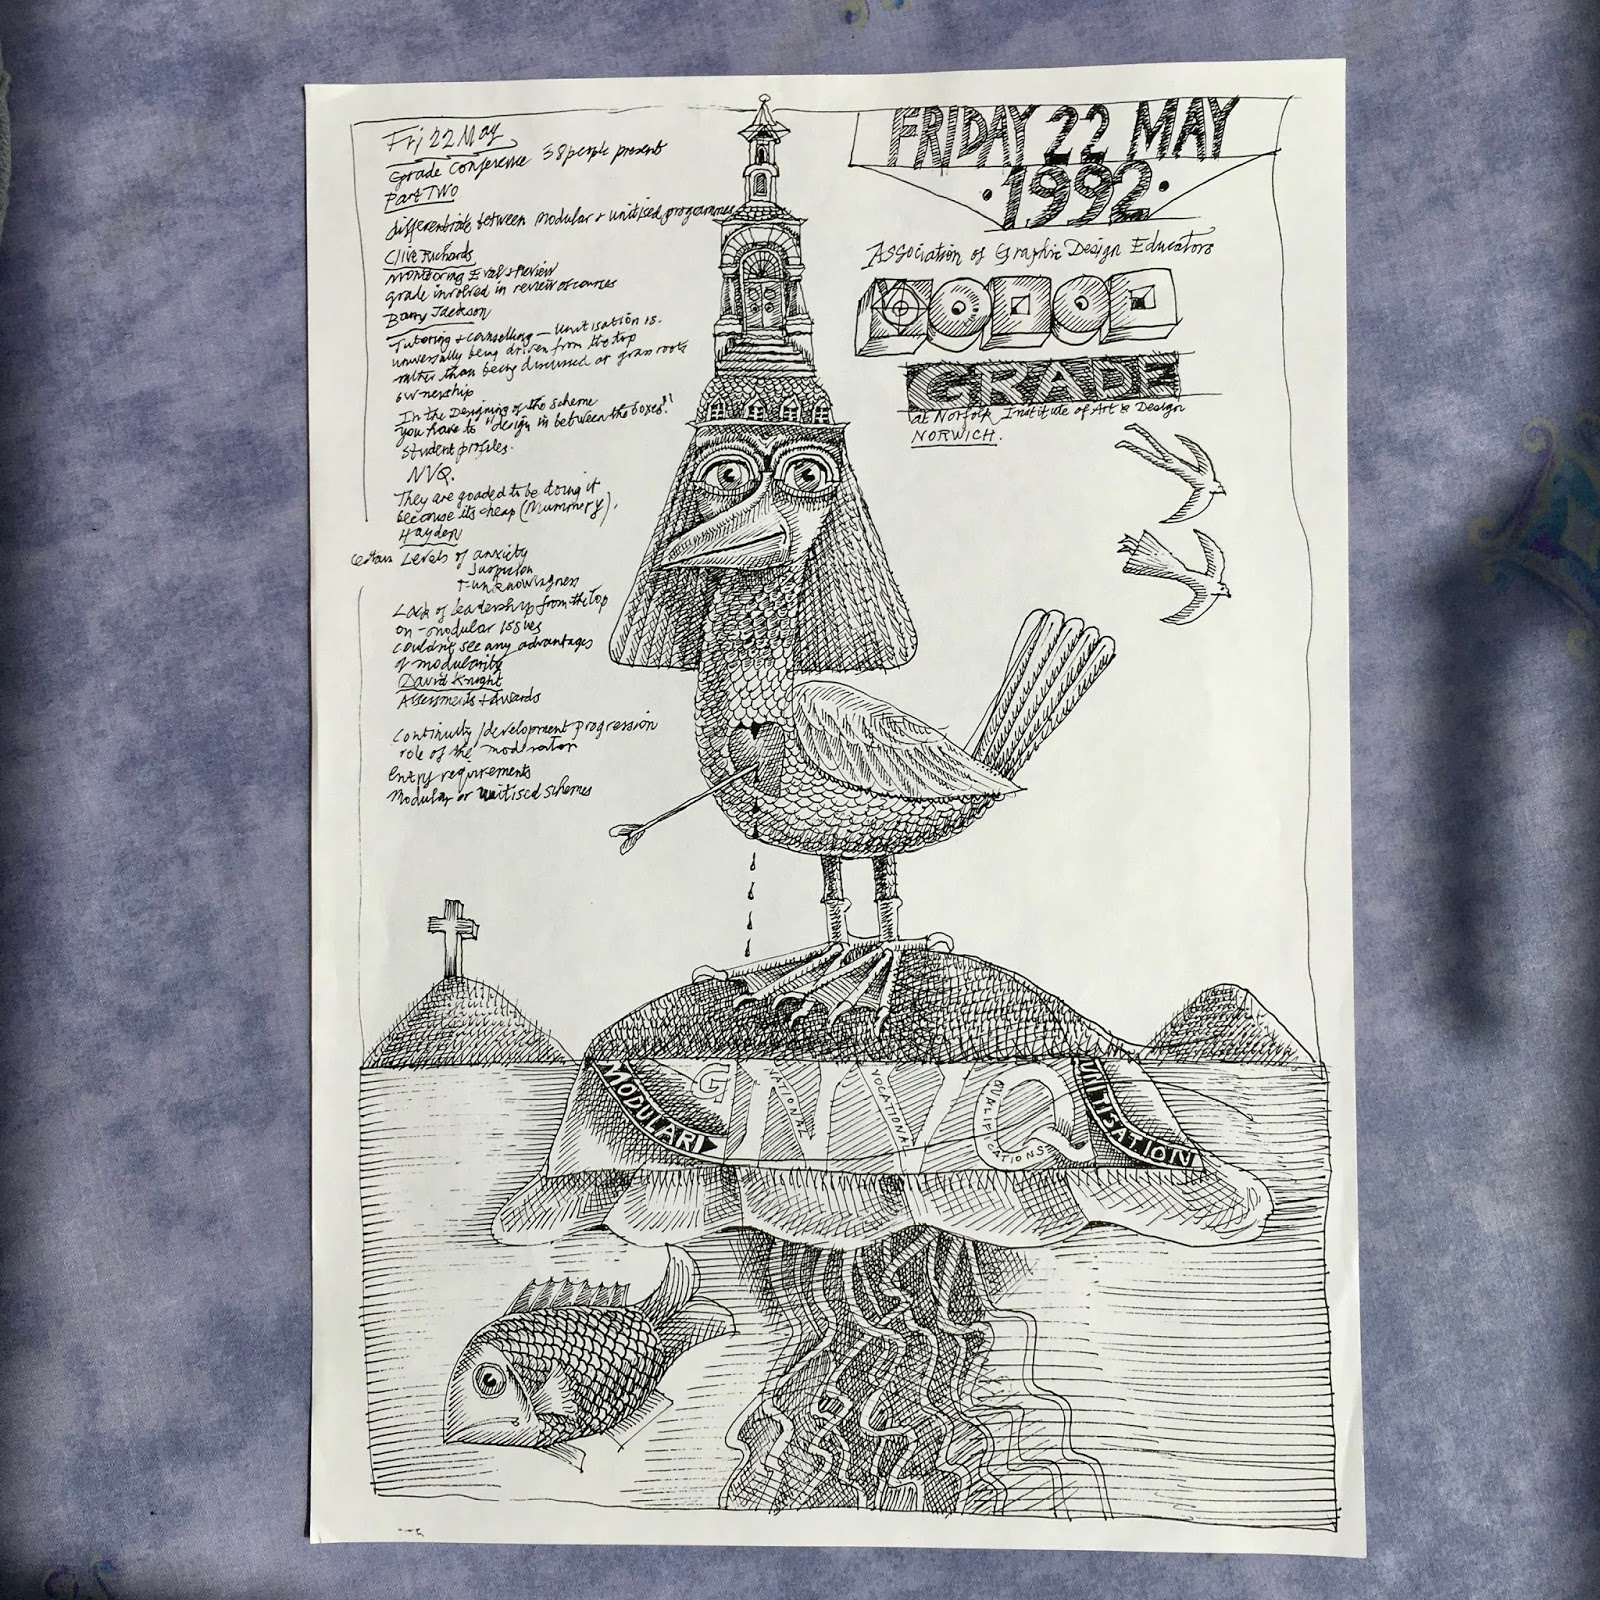 Fri 22 May
Grade Conference 38 people present
Part TWO
differentiate between modular + unitised programmes
Clive Richards
Monitoring Eval + Review
Grade involved in review of courses
Barry Jackson
Tutoring + counselling - Unitisation is
universally being driven from the top
rather than being discussed at grass roots
ownership
In the Designing of the scheme
you have to "design in between the boxes!"
Student profiles.
NVQ.
They are goaded to be doing it
because its cheap (Mummery).
Hayden
certain Levels of anxiety
suspicion
+ unknowingness
Lack of leadership from the top
on modular issues
couldn't see any advantages
of modularity
David Knight
Assessments + Awards
Continuity / development progression
role of the moderator
Entry requirements
Modular or unitised schemes
FRIDAY 22 MAY
1992
Association of Graphic Design Educators
GRADE
at Norfolk Institute of Art & Design
NORWICH.
MODULARI
G N V Q
NATIONAL
VOCATIONAL
QUALIFICATIONS
UNITISATION